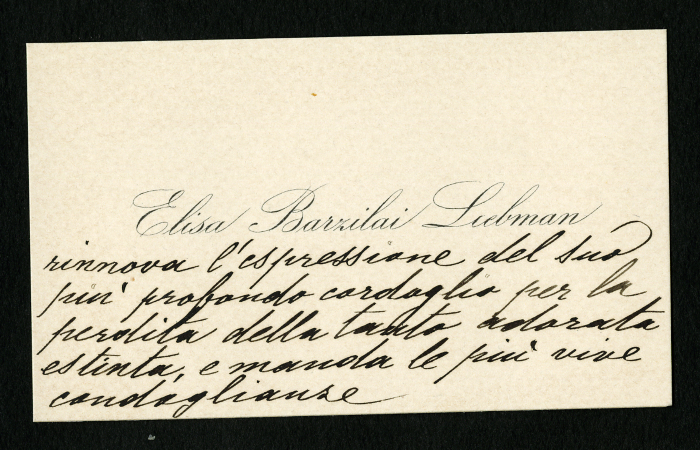 Elisa Barzilai Luebman
rinnova l'espressione del suo
piu' profondo cordoglio per la
perdita della tanto adorata
estinta, e manda le più vive
condoglianze